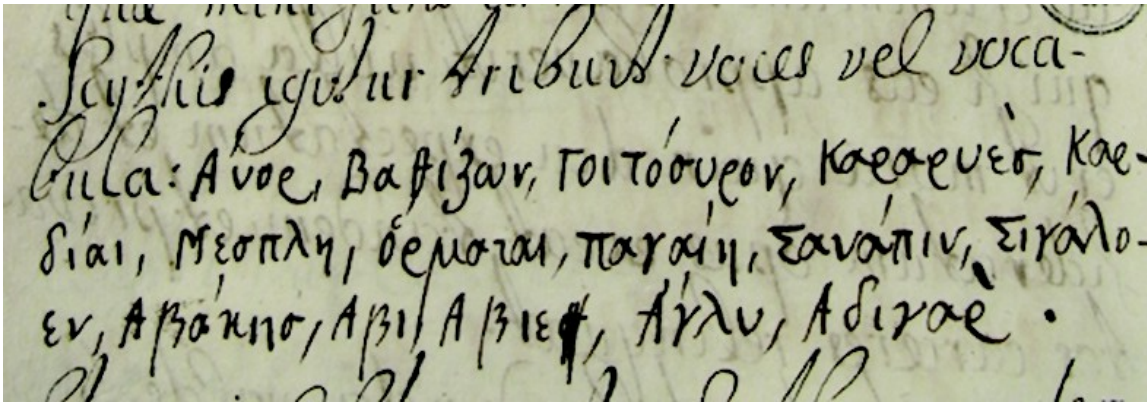 Scythis igitur tribuit voces vel voca-
bula: Άνορ, Βαθίζων, Γοιτόσυρον, Καραρυὲσ, Καρ-
δίαι, Μεσπλη, ὅρμαται, παγαίη, Σανάπιν, Σιγάλο-
εν, Αβάκησ, Αβι, Αβιεφ, Άγλυ, Αδιγαρ̀.